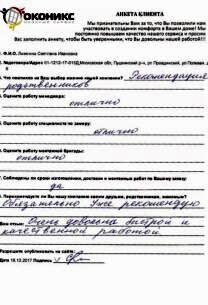 ОКОНИКС
АНКЕТА КЛИЕНТА
Мы признательны Вам за то, что Вы позволили нам
участвовать в создании комфорта в Вашем доме! Мы
постоянно повышаем качество нашего сервиса и просим
Вас заполнить анкету, чтобы быть уверенными, что Вы довольны нашей работой!!!
Ф.И.О. Светлана Ивановна
Московская обл, Пушкинский р-н,
Что повлияло на Ваш выбор именно нашей компании? Рекомендация
родственников
Оцените работу менеджера:
отлично
Оцените работу специалиста по замеру:
отлично
Оцените работу монтажной бригады:
отлично
Соблюдены ли сроки изготовления, доставки и монтажных работ по Вашему заказу:
да
Порекомендуете ли Вы нашу компанию своим друзьям, родственникам, знакомым?
Обязательно Уже рекомендую
Ваш отзыв: Очень довольна быстрой и
качественной работой
Разрешите опубликовать на сайте:
Дата 18.12.2017 Подпись